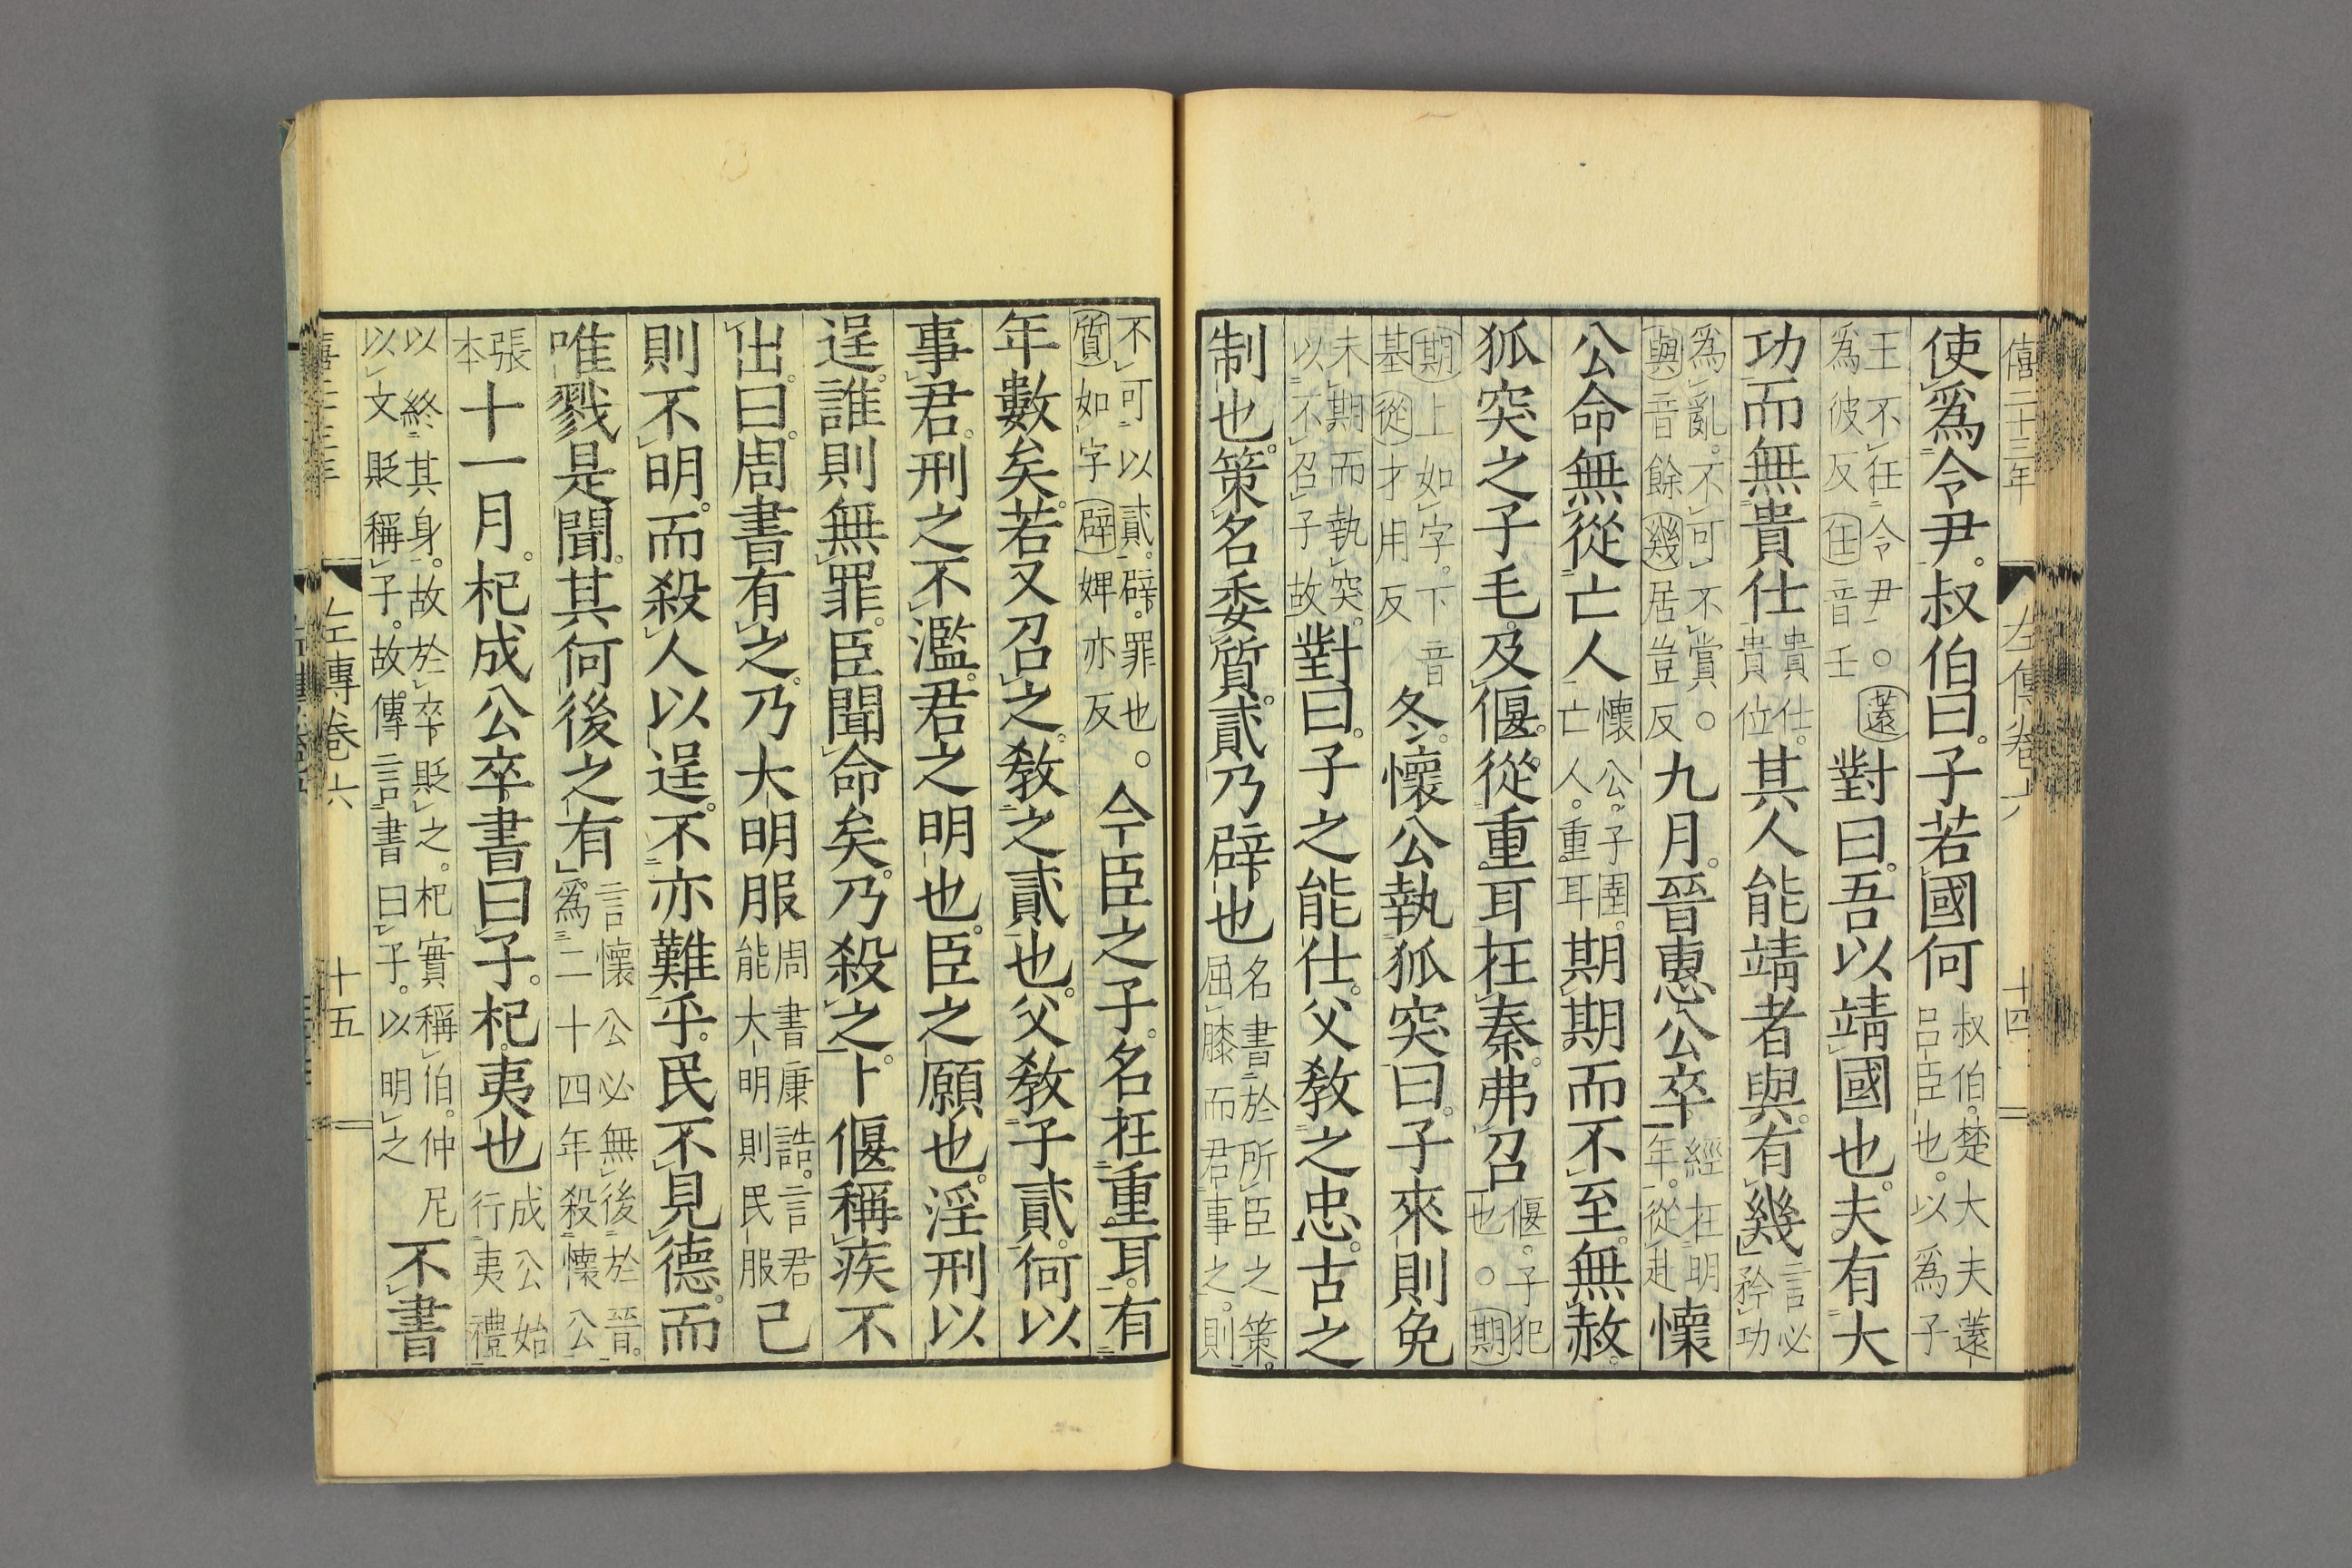 僖二十三年　左傳卷六　十四
使爲令尹。叔伯曰。子若國何叔伯。楚大夫薳呂臣也。以爲子
王不任令尹。○薳爲彼反任音壬對曰。吾以靖國也。夫有大
功而無貴仕貴仕。貴位其人能靖者與。有幾言必矜功
爲亂。不可不賞。○與音餘幾居豈反九月。晉惠公卒經在明年。從赴懷
公命無從亡人懷公。子圉。亡人。重耳期期而不至。無赦。
狐突之子毛。及偃。從重耳在秦。弗召偃。子犯也。○期
期上如字。下音基從才用反冬。懷公執狐突曰。子來則免
未期而執突。以不召子故對曰。子之能仕。父教之忠。古之
制也。策名委質。貳乃辟也名書於所臣之策。屈膝而君事之。則
不可以貳。辟。罪也。○質如字辟婢亦反今臣之子。名在重耳。有
年數矣。若又召之。教之貳也。父教子貳。何以
事君。刑之不濫。君之明也。臣之願也。淫刑以
逞。誰則無罪。臣聞命矣。乃殺之。卜偃稱疾不
出。曰。周書有之。乃大明服周書康誥。言君能大明則民服己
則不明。而殺人以逞。不亦難乎。民不見德。而
唯戮是聞。其何後之有言懷公必無後於晉。爲二十四年殺懷公
張本十一月。杞成公卒。書曰子。杞。夷也成公始行夷禮
以終其身。故於卒貶之。杞實稱伯。仲尼以文貶稱子。故傳言書曰子。以明之不書
左傳卷六　十五